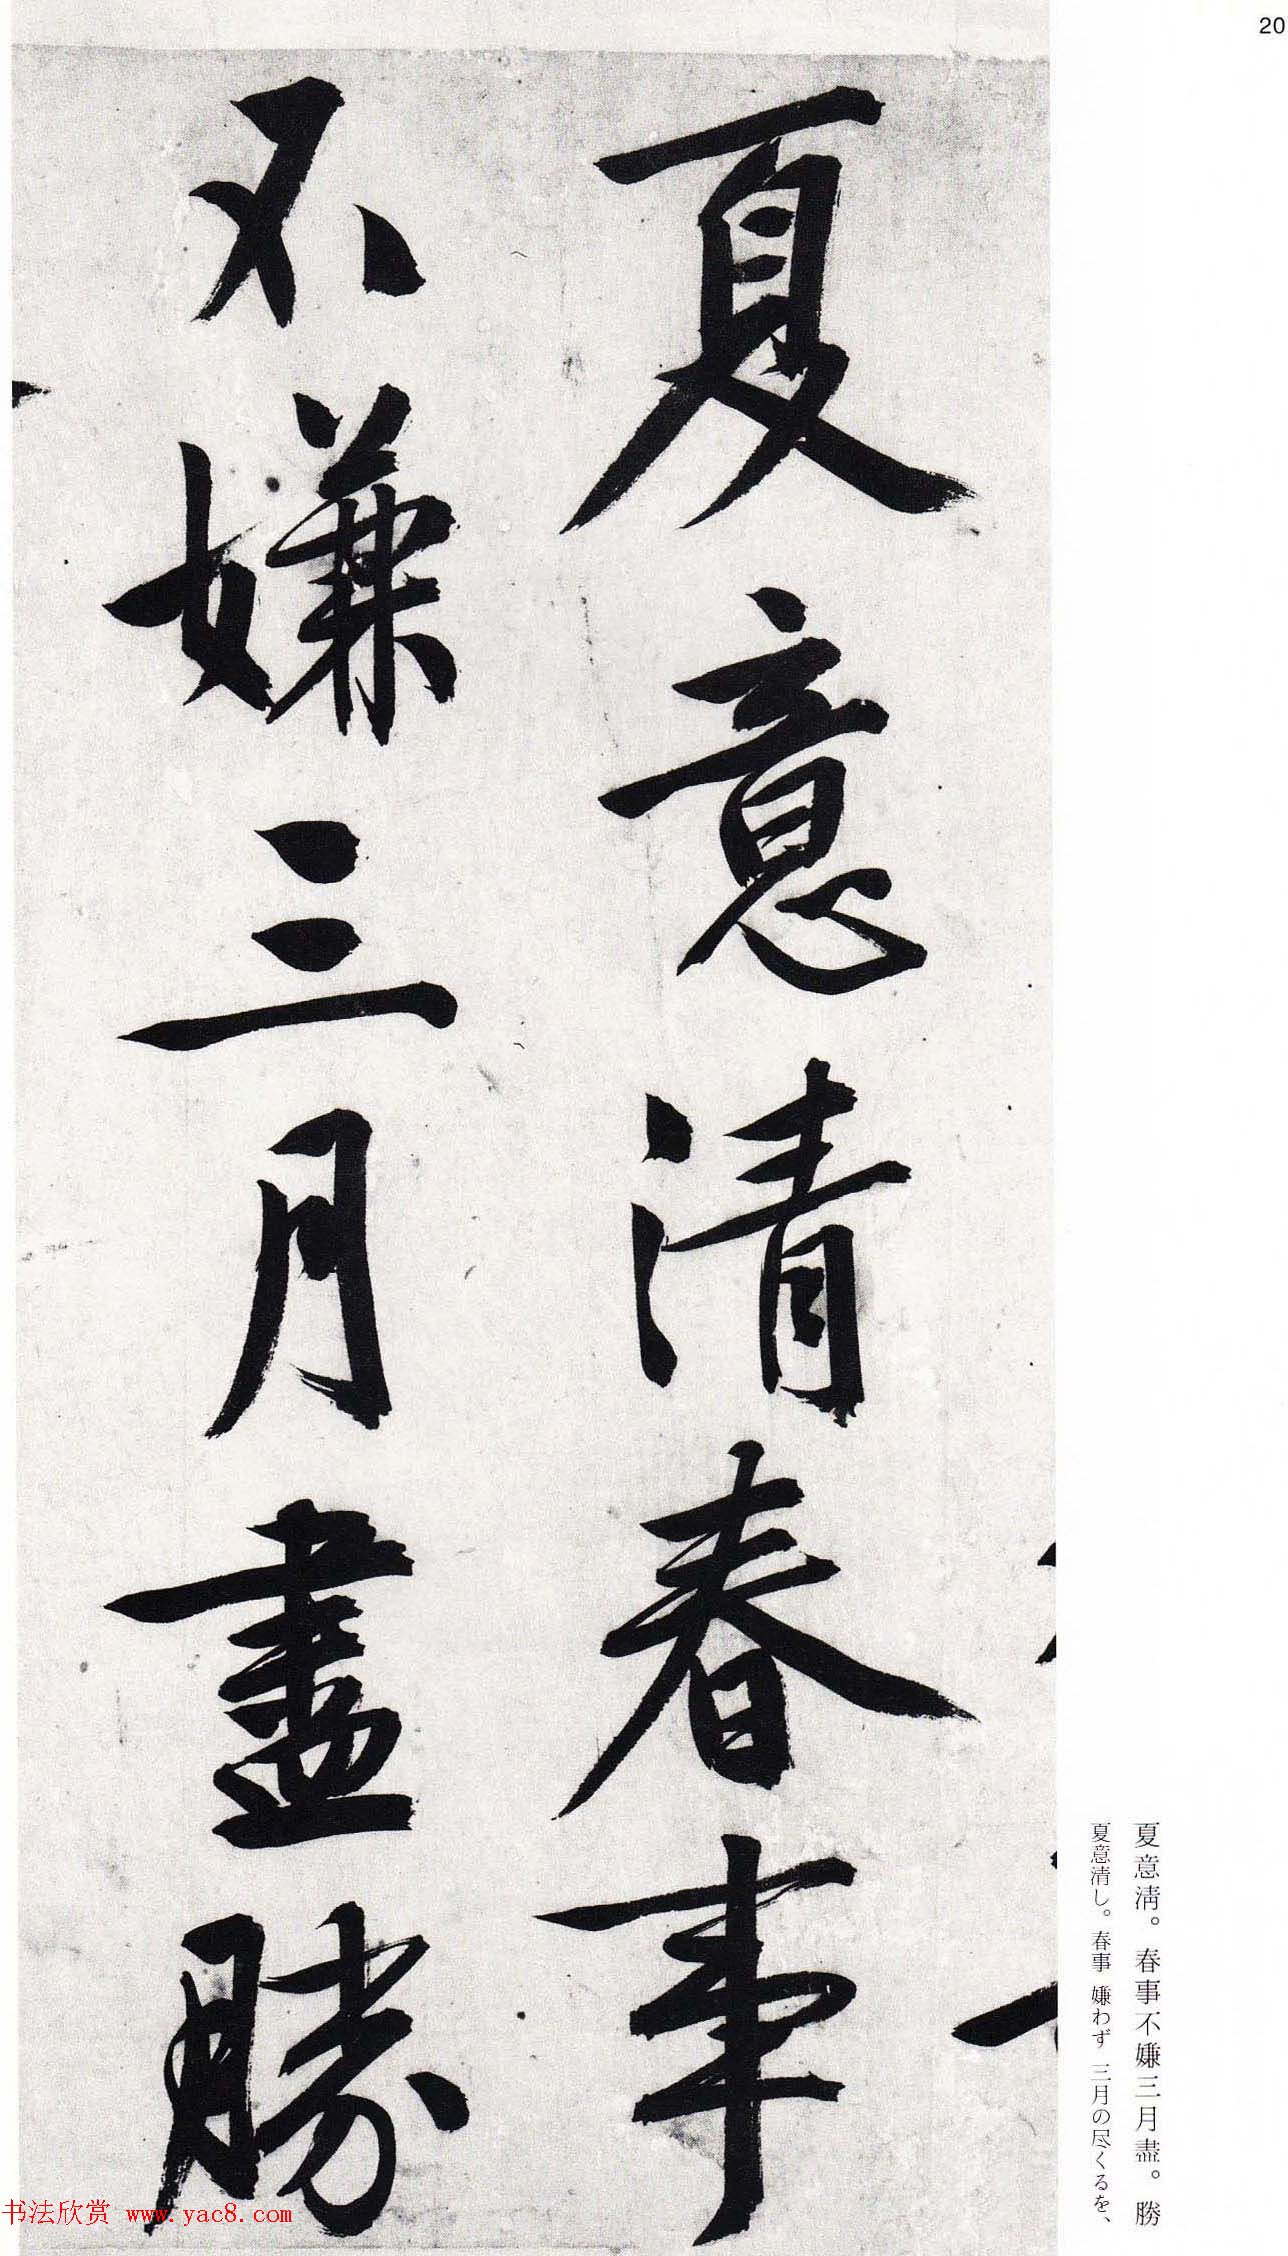 20
夏意清春事
不嫌三月盡勝
夏意淸。春事不嫌三月盡。勝
夏意清し。春事 嫌わず 三月の尽くるを、
书法欣赏 www.yac8.com